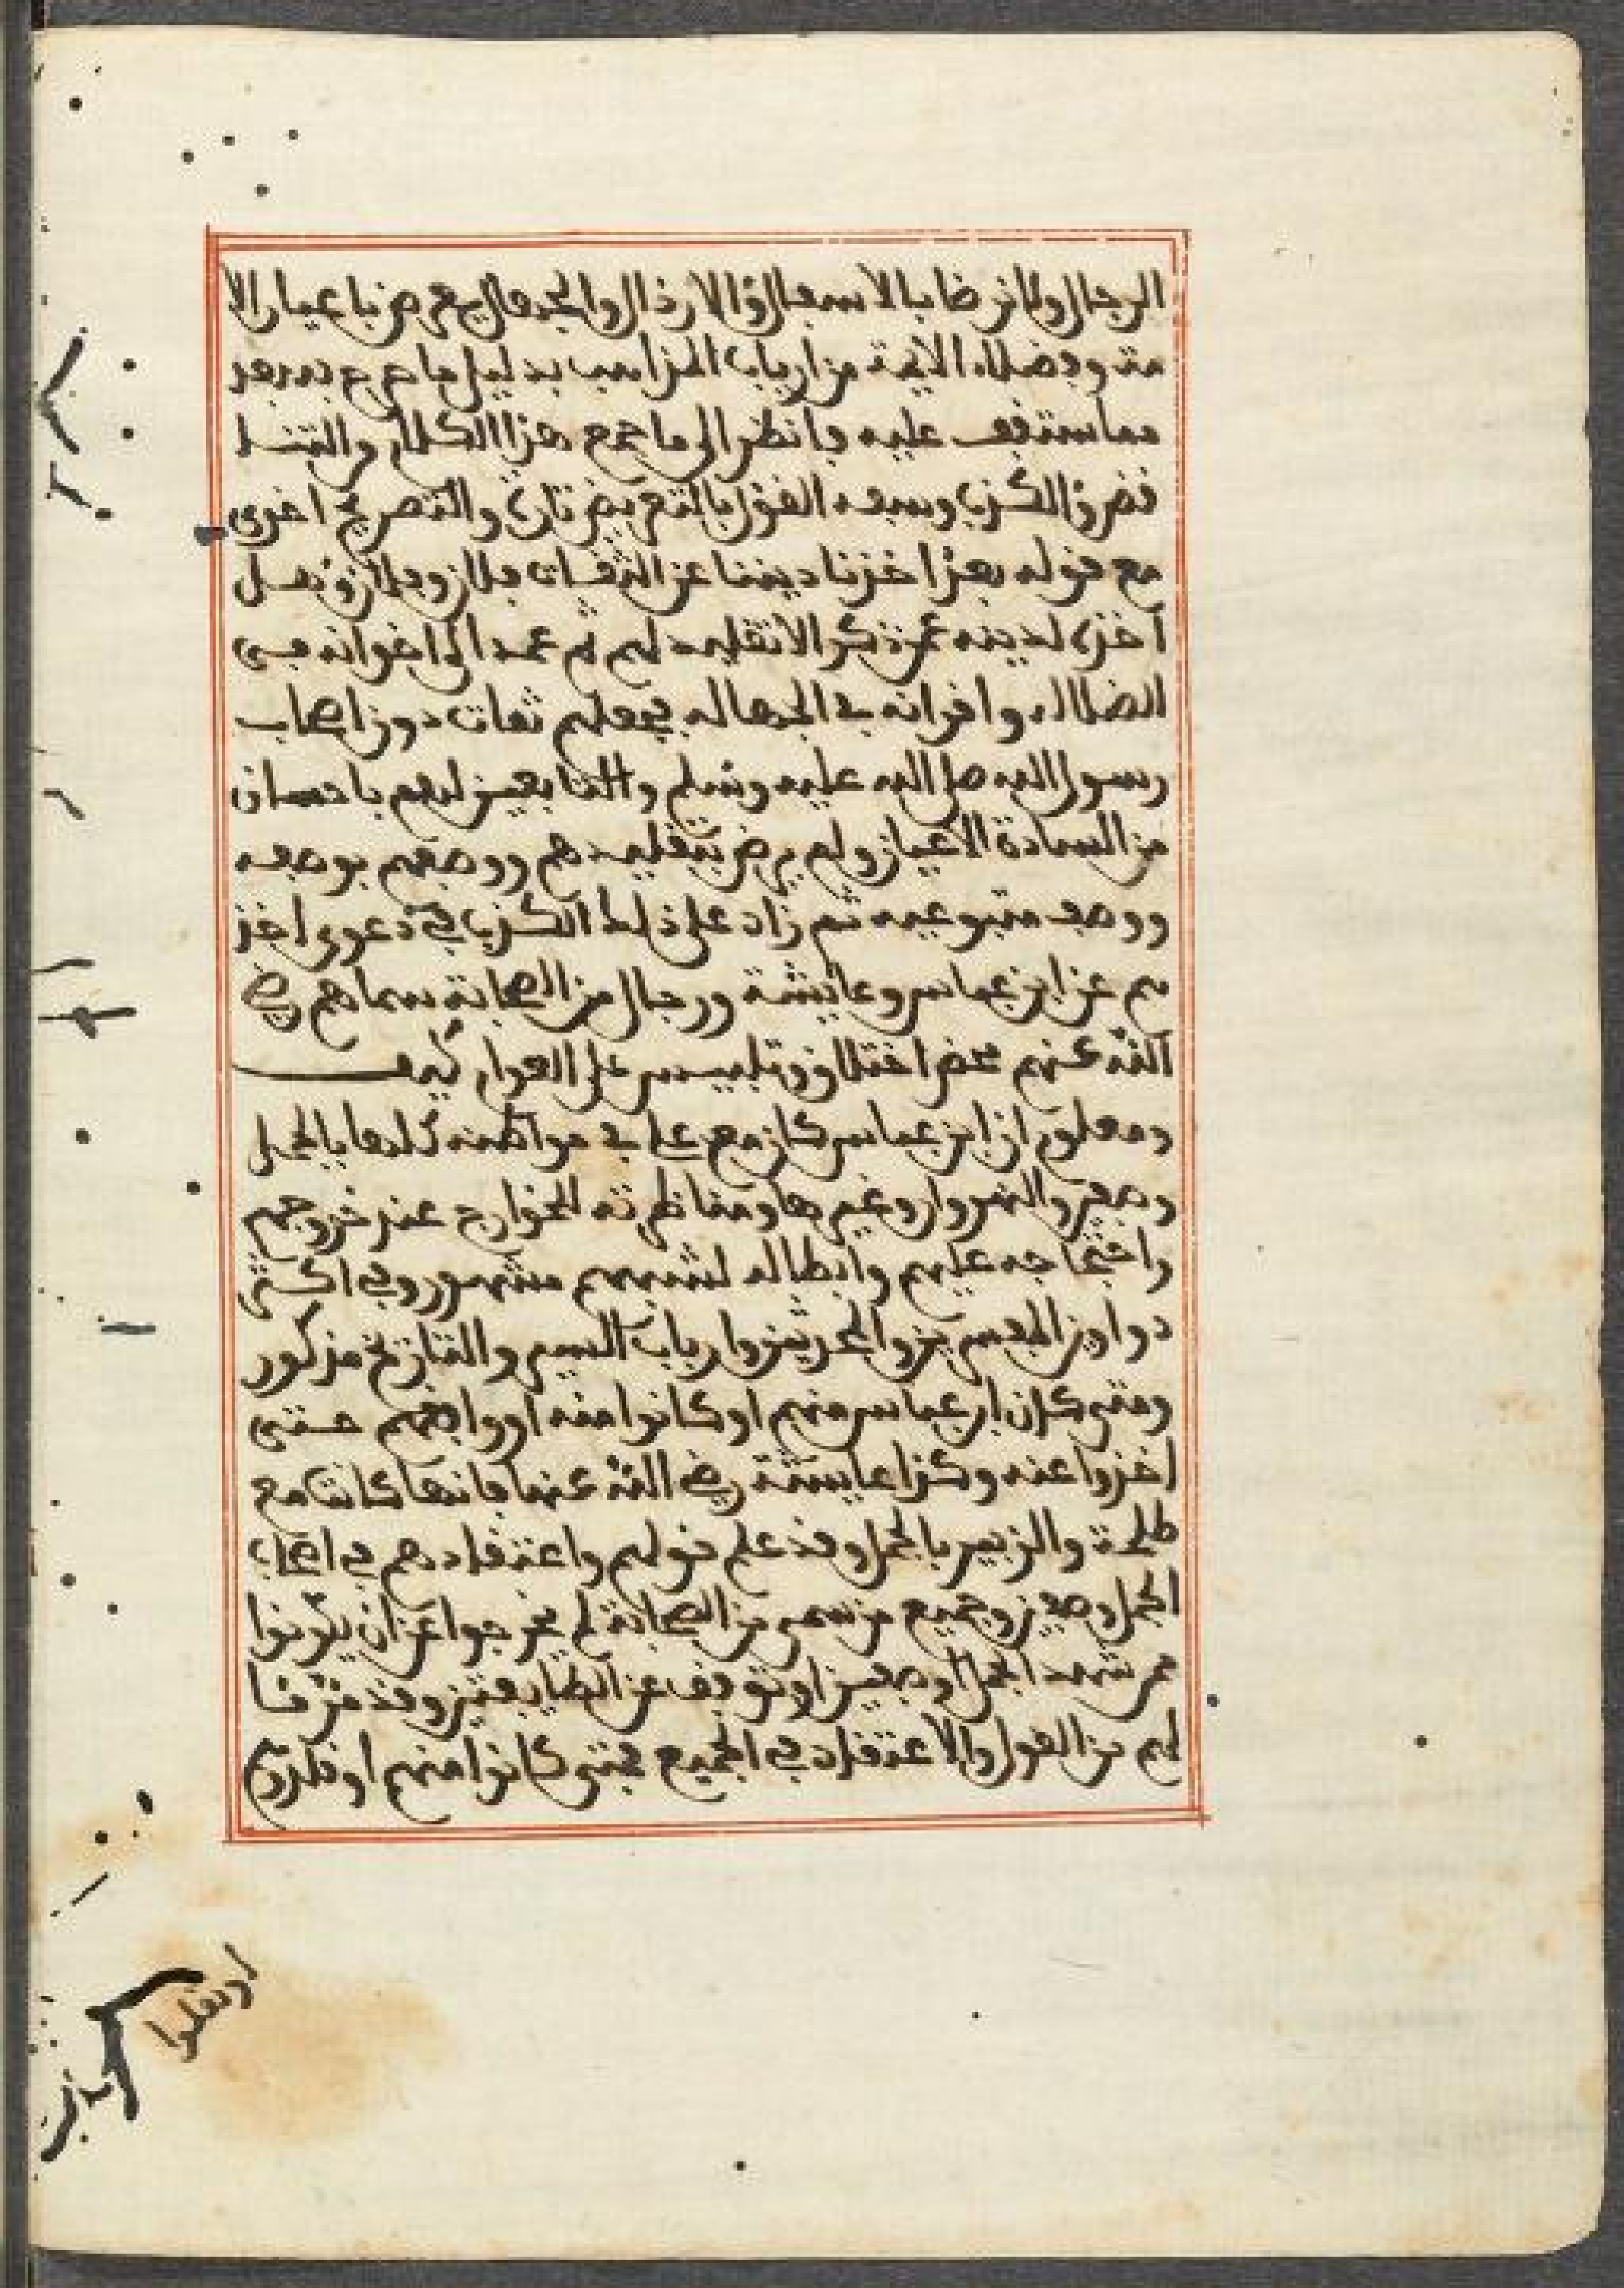 الرجال ولا نرضا بالاسفال والارذال والجهال يعرض باعيان الا
مة وفضلاء الايمة من ارباب المذاهب بدليل ما صرح به بعد
مما ستقف عليه فانظر الى ما جمع هذا الكلام والتنا
قض والكذب وسفه القول بالتعريض تارة والتصريح اخرى
مع قوله بهذا اخذنا ديننا عن الثقات فلان وفلان وهل
اخذه لدينه عمن ذكر الا تقليد لهم ثم عمد الى اخوانه في
الضلاله واقرانه في الجهاله فجعلهم ثقات دون اصحاب
رسول الله صلى الله عليه وسلم والتابعين لهم باحسان
من السادة الاعيان ولم يرض بتقليدهم ووصفهم بوصفه
ووصف متبوعيه ثم زاد على ذلك الكذب في دعوى اخذ
هم عن ابن عباس وعايشة ورجال من الصحابة سماهم رضي
الله عنهم محض اختلاق وتلبيس على العوام كيف
ومعلوم ان ابن عباس كان مع علي في مواطنه كلها بالجمل
وصفين والنهروان وغيرها ومناظرته للخوارج عند خروجهم
واحتجاجه عليهم وابطاله لشبههم مشهور وفي اكثر
دواوين المفسرين والمحدثين وارباب السير والتاريخ مذكور
ومتى كان ابن عباس منهم او كانوا منه او وافقهم حتى
اخذوا عنه وكذا عايشة رضي الله عنها فانها كانت مع
طلحة والزبير بالجمل وقد علم قولهم واعتقادهم في اصحاب
الجمل وصفين وجميع من سمى من الصحابة لم يخرجوا عن ان يكونوا
ممن شهد الجمل او صفين او توقف عن الطايفتين وقد عرفنا
لهم من القول والاعتقاد في الجميع فمتى كانوا منهم او قلدوهم
او نقلوا